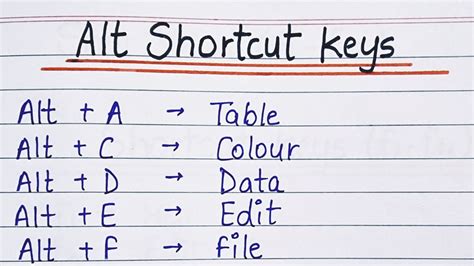 Alt Shortcut keys
Alt + A → Table
Alt + C → Colour
Alt + D → Data
Alt + E → Edit
Alt + F → file